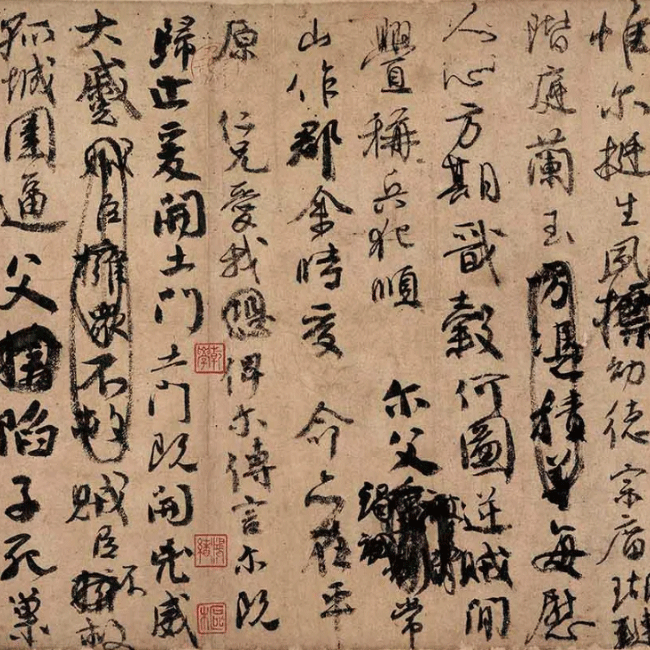 惟尔挺生夙標幼德宗廟瑚璉
階庭蘭玉方憑積善每慰
人心方期戩穀何圖逆賊閒
舋稱兵犯順 尔父竭誠常
山作郡余時受 命亦在平
原 仁兄愛我恐俾尔傳言尔既
歸止爰開土門土門既開凶威
大蹙賊臣擁衆不救賊臣不擁救
孤城圍逼父擒陷子死巢